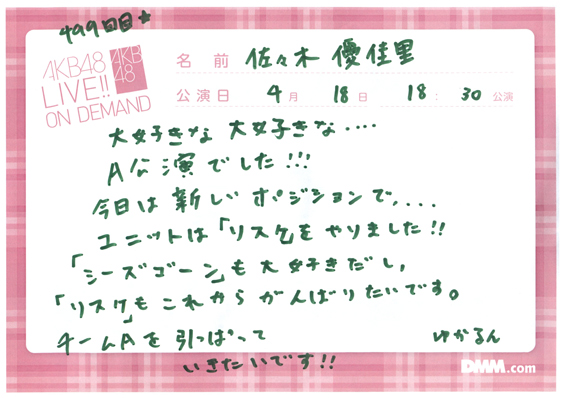 499回目★
AKB48
LIVE!!
ON DEMAND
AKB
48
名前 佐々木 優佳里
公演日 4月 18日 18:30公演
大好きな 大好きな....
A公演でした!!!
今日は新しいポジションで,....
ユニットは「リスケ」をやりました!!
「シーズゴーン」も大好きだし,
「リスケ」もこれからがんばりたいです。
チームAを引っぱって
いきたいです!!
ゆかるん
DMM.com